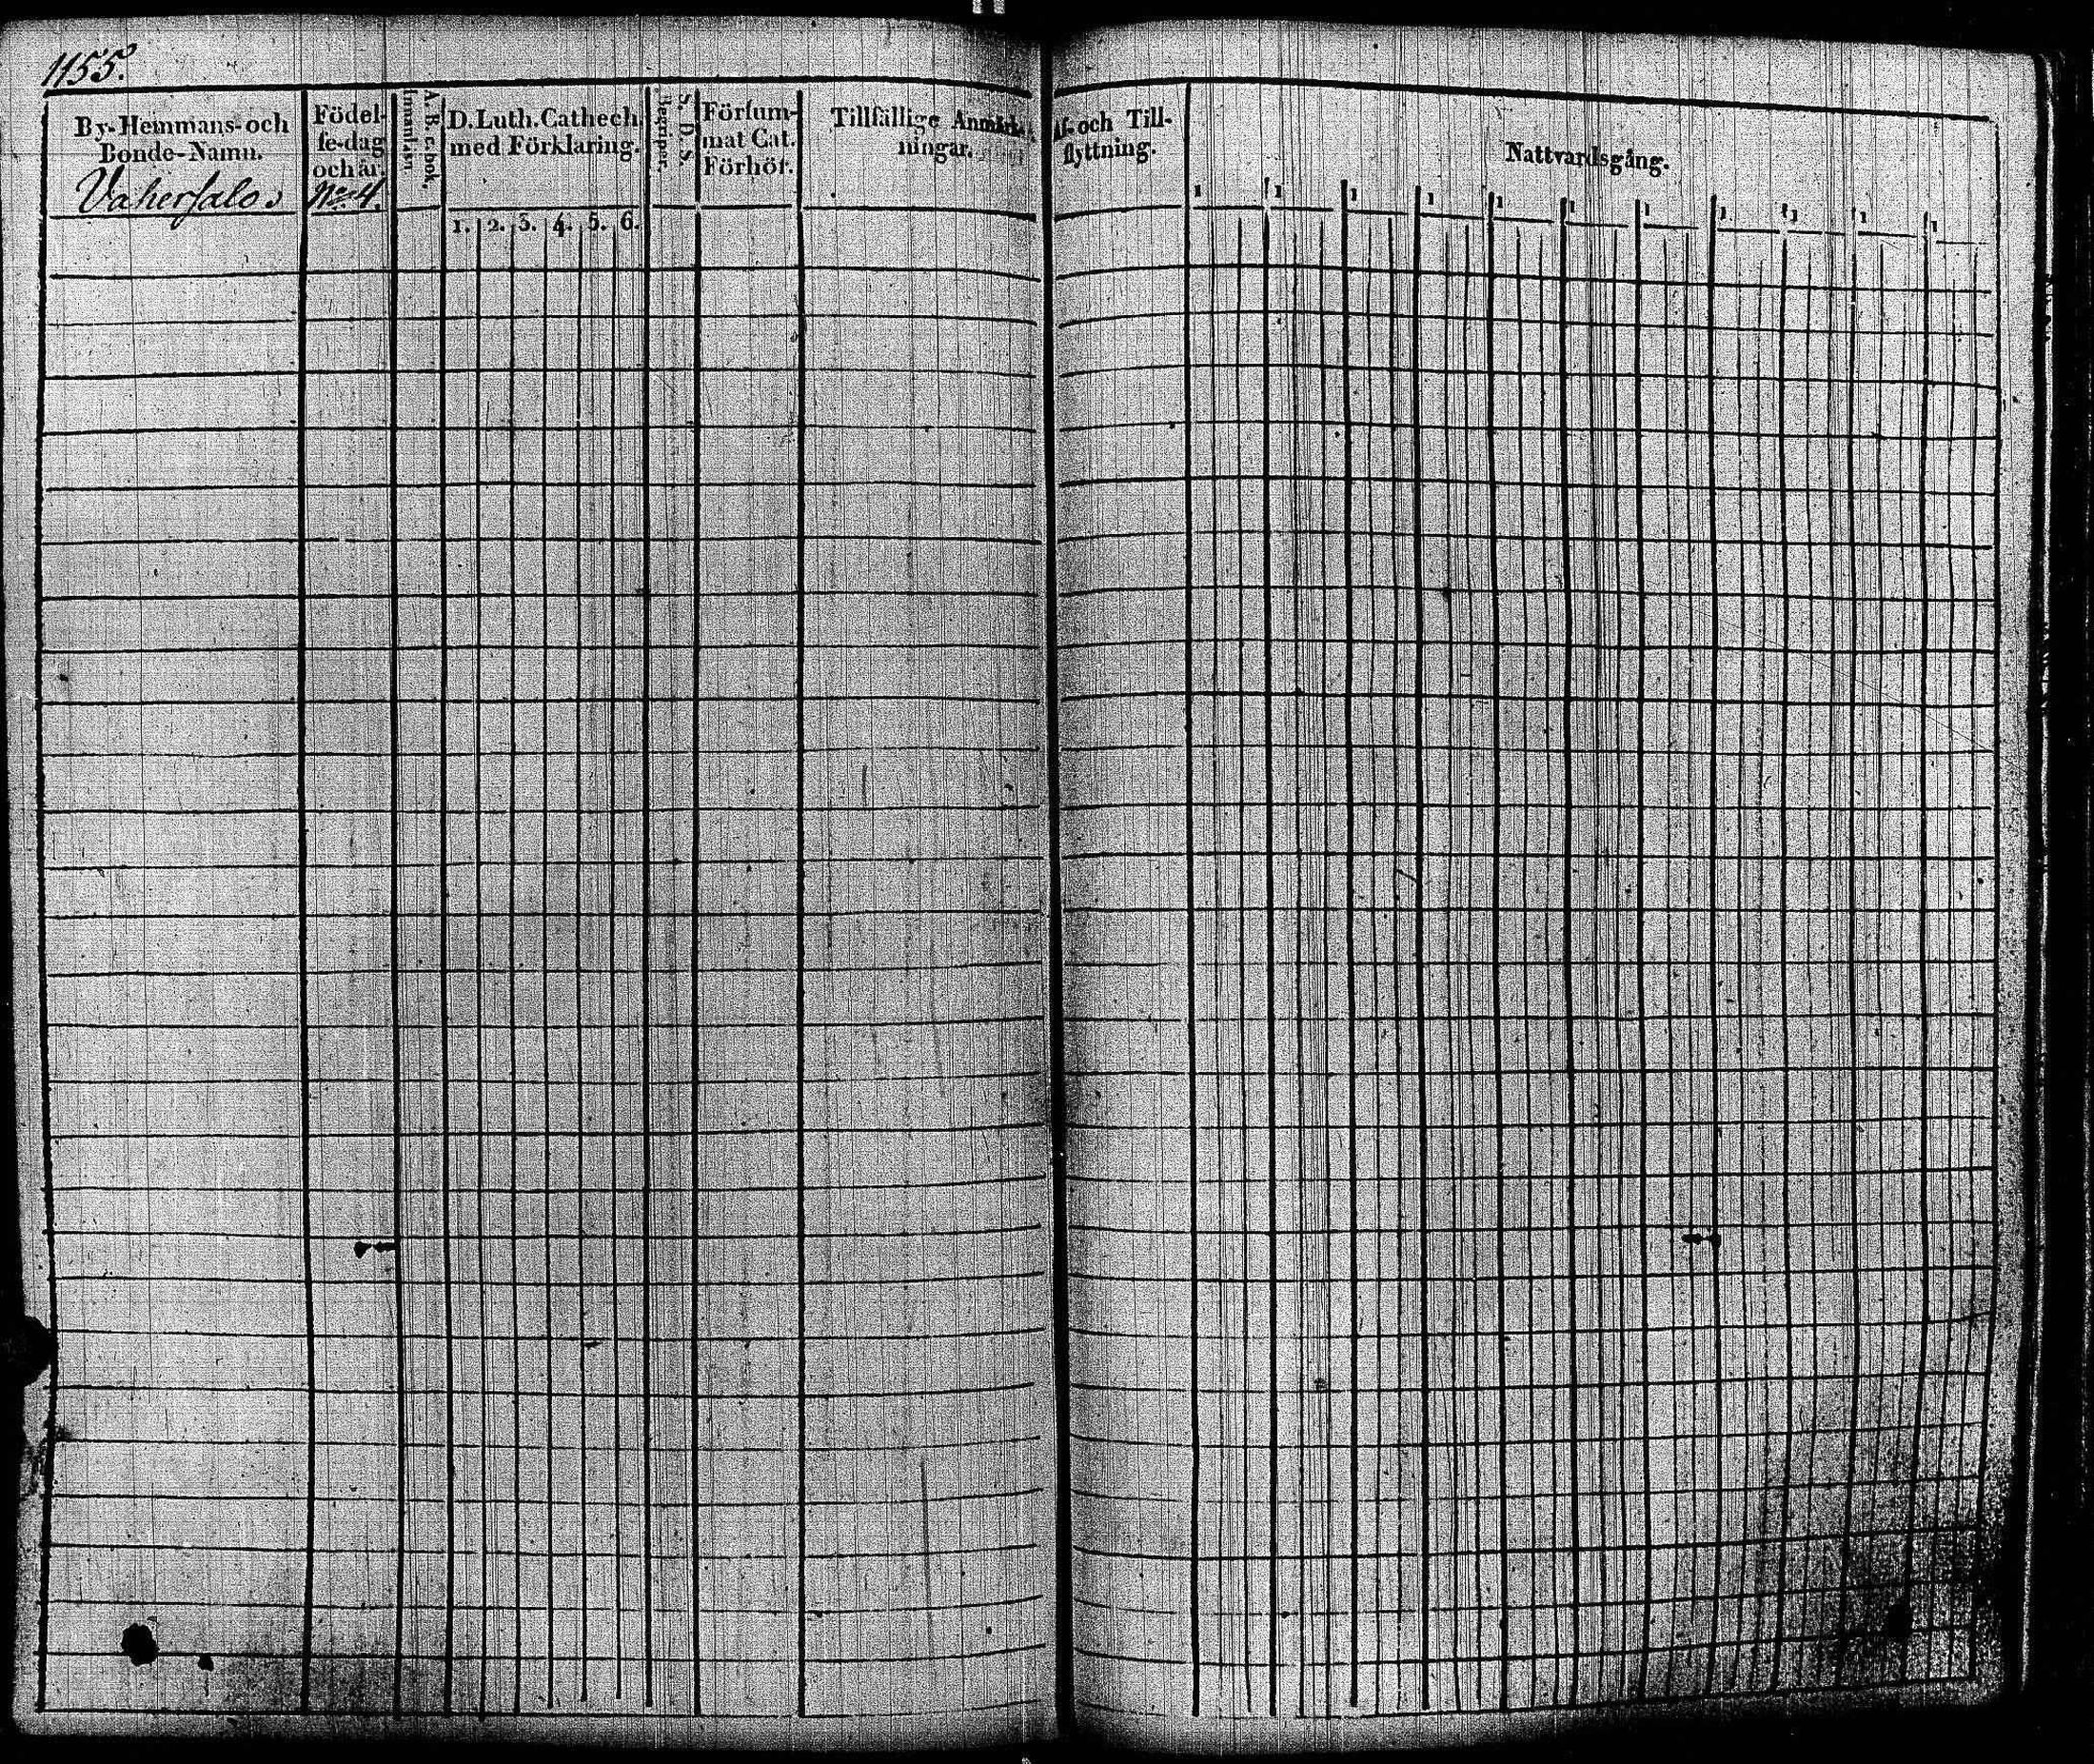 1155.
By-Hemmans-och
Bonde-Namn.
Vahersalo
Födel-
se-dag
och år.
No 4.
A. B. c. bok.
Innanläsn
D. Luth. Cathech.
med Förklaring.
1. 2. 3. 4. 5. 6.
S. D. S.
Begriper.
Försum-
mat Cat.
Förhör.
Tillfällige Anmärk-
ningar.
Af- och Till-
flyttning.
Nattvardsgång.
1 1 1 1 1 1 1 1 1 1 1